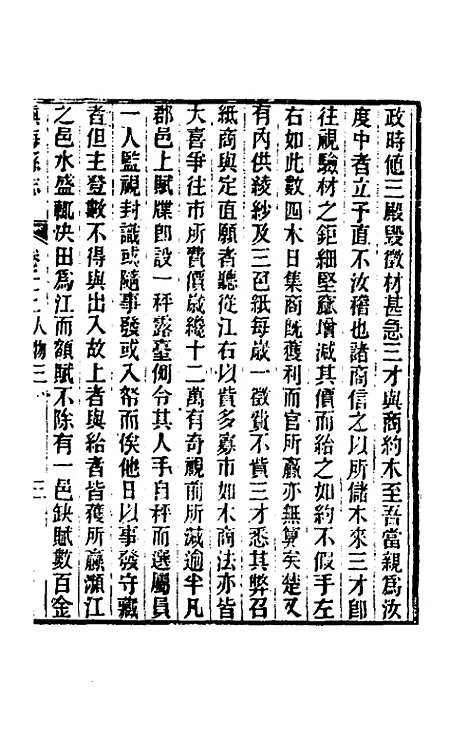 政時值三殿毀徵材甚急三才與商約木至吾當親為汝
度中者立予直不汝稽也諸商信之以所儲木來三才即
往視驗材之鉅細堅窳增減其價而給之如約不假手左
右如此數四木日集商既獲利而官所贏亦無算矣楚又
有內供綾紗及三色紙每歲一徵費不貲三才悉其弊召
紙商與定直願者聽從江右以貲多募市如木商法亦皆
大喜爭往市所費價歲纔十二萬有奇視前所減逾半凡
郡邑上賦牒郎設一秤露臺側令其人手自秤而選屬員
一人監視封識或隨事發或入帑而俟他日以事發守藏
者但主登數不得與出入故上者與給者皆獲所贏瀕江
之邑水盛輒決田為江而額賦不除有一邑缺賦數百金
鎮海縣志
卷二十二人物三